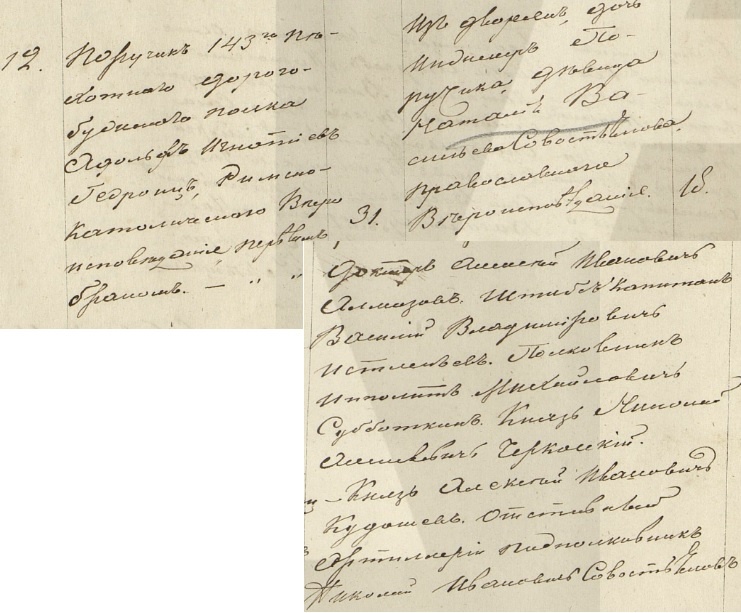 12.
Поручикъ 143го Пѣ-
хотнаго Дорого-
бужскаго полка
Адольфъ Игнатьевъ
Гедройцъ, Римско-
Католическаго Вѣро
исповѣданія, первымъ
бракомъ. — " "
31.
Изъ дворянъ, дочь
Инженеръ По-
ручика, дѣвица
Наталія Ва-
сильева Совостьянова.
православнаго
Вѣроисповѣданія.
18.
Докторъ Алексѣй Ивановичъ
Алмазовъ. Штабсъ Капитанъ
Василій Владиміровичъ
Истлѣевъ. Полковникъ
Ипполитъ Михайловичъ
Субботкинъ. Князь Николай
Алексѣевичъ Черкаскій.
— Князь Алексѣй Ивановичъ
Кудашевъ. Отставный
Артиллеріи подполковникъ
Николай Ивановичъ Совостьяновъ